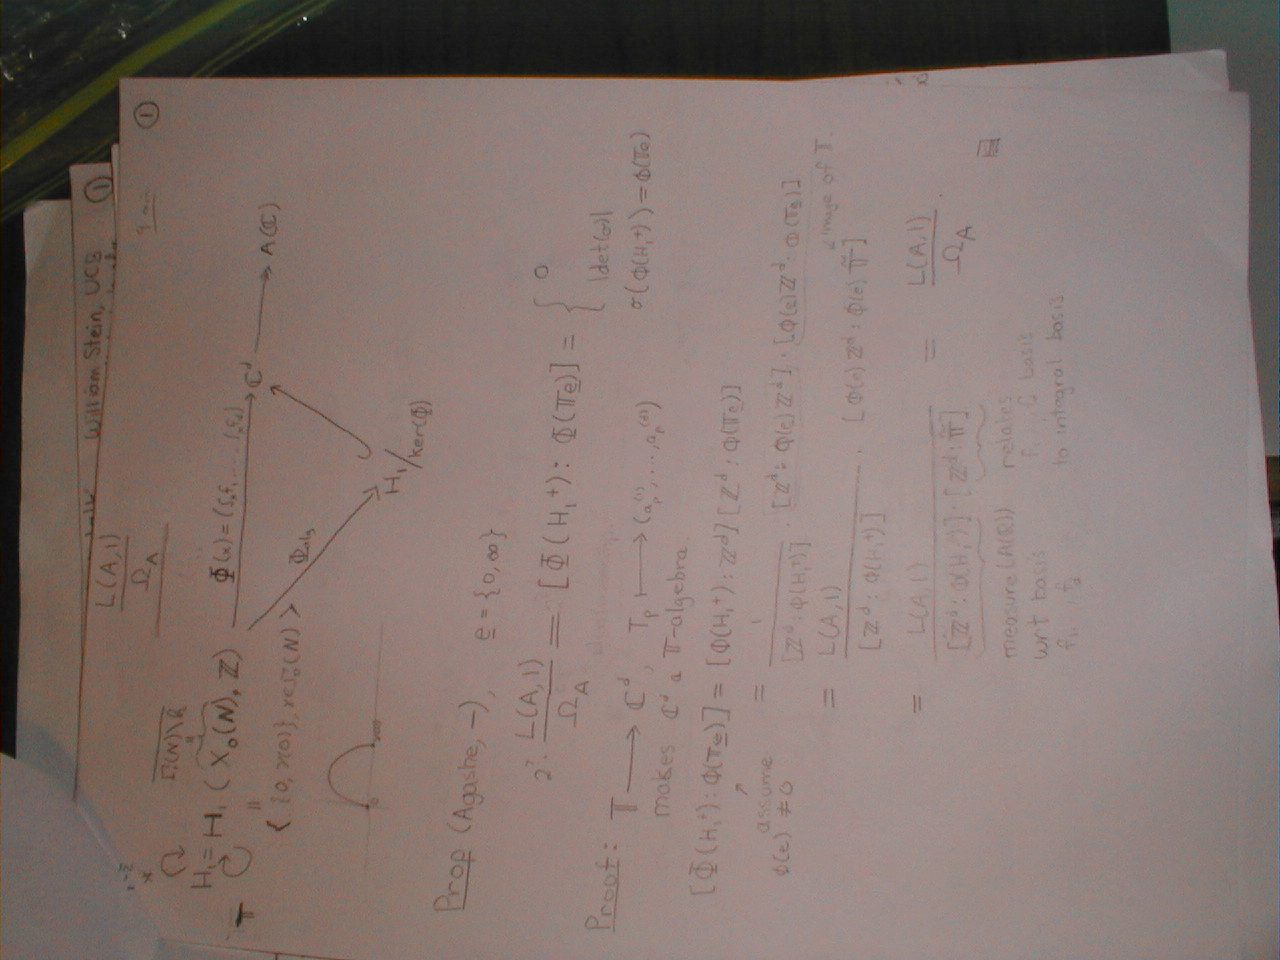 William Stein, UCB ①
①
L(A,1)/Ω_A
Γ₀(N)\h
H₁ = H₁(X₀(N), ℤ)
𝕋
Φ(x) = (∫ₓf₁, ..., ∫ₓf_d)
ℂ^d → A(ℂ)
= < {0, γ(0)}, γ∈Γ₀(N) >
Φ_alg
H₁/ker(Φ)
0 γ(0)
Prop (Agashe, –), e = {0, ∞}
2^? · L(A,1)/Ω_A = [Φ(H₁⁺) : Φ(𝕋e)] = { 0
|det(σ)|
σ(Φ(H₁⁺)) = Φ(𝕋e)
Proof: 𝕋 → ℂ^d, T_p ↦ (a_p^(1), ..., a_p^(d))
makes ℂ^d a 𝕋-algebra.
[Φ(H₁⁺) : Φ(𝕋e)] = [Φ(H₁⁺) : ℤ^d][ℤ^d : Φ(𝕋e)]
assume
Φ(e) ≠ 0
= 1/[ℤ^d : Φ(H₁⁺)] · [ℤ^d : Φ(e)ℤ^d] · [Φ(e)ℤ^d : Φ(𝕋e)]
= L(A,1)/[ℤ^d : Φ(H₁⁺)] · [Φ(e)ℤ^d : Φ(e)𝕋̃]
image of 𝕋.
= L(A,1)/[ℤ^d : Φ(H₁⁺)] · [ℤ^d : 𝕋̃] = L(A,1)/Ω_A
measure(A(ℝ))
wrt basis
f₁, ..., f_d
relates
basis
to integral basis